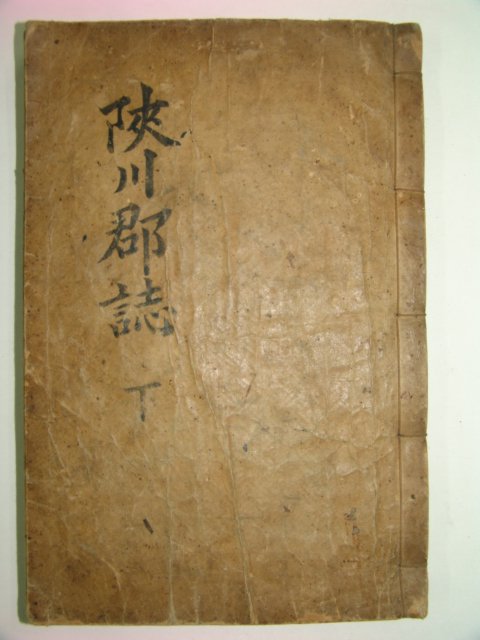 陜川郡誌 下